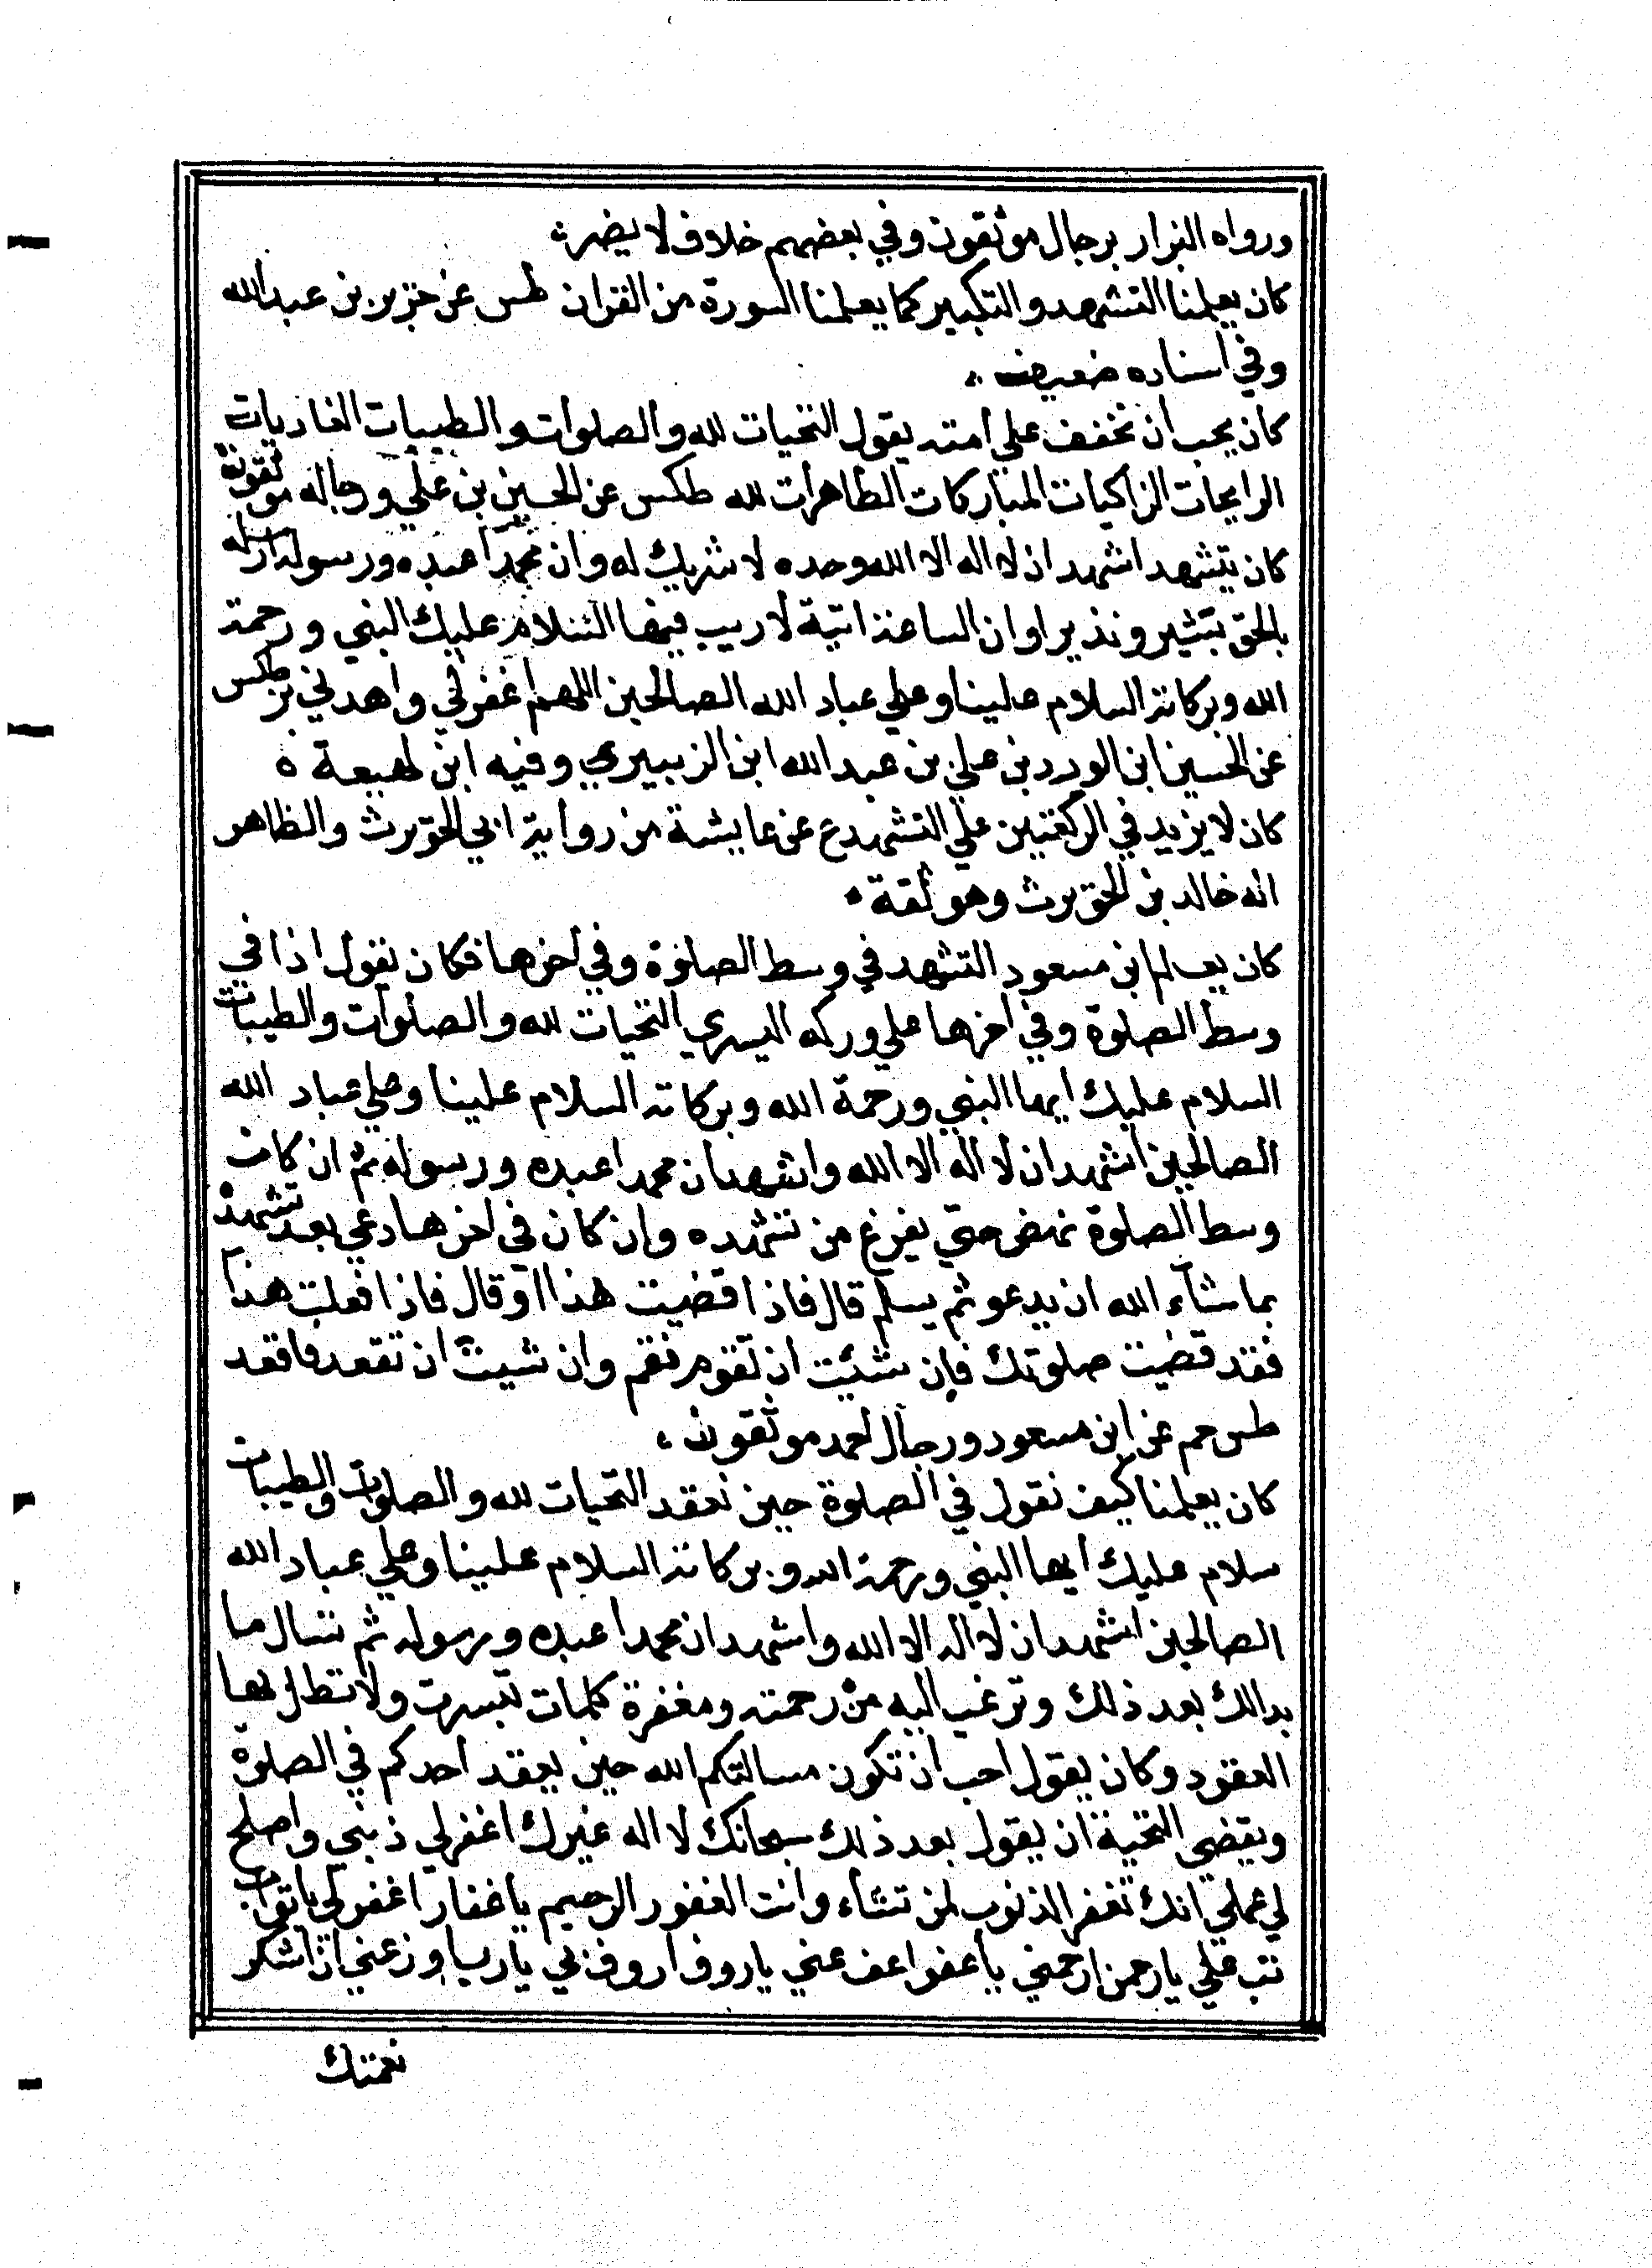 ورواه البزار برجال موثقون وفي بعضهم خلاف لا يضر
كان يعلمنا التشهد والتكبير كما يعلمنا السورة من القران طس عن جرير بن عبد الله
وفي اسناده ضعيف
كان يحب ان تخفف علي امته يقول التحيات لله والصلوات والطيبات الغاديات
الرايحات الزاكيات المباركات الطاهرات لله طكس عن الحسين بن علي ورجاله موثقون
كان يتشهد اشهد ان لا اله الا الله وحده لا شريك له وان محمدا عبده ورسوله ارسله
بالحق بشير ونذيرا وان الساعة اتية لا ريب فيها السلام عليك النبي ورحمة
الله وبركاته السلام علينا وعلي عباد الله الصالحين اللهم اغفرلي واهدني بز طكس
عن الحسين ابن الورد بن علي بن عبد الله ابن الزبيري وفيه ابن لهيعة ه
كان لا يزيد في الركعتين علي التشهد ع عن عايشة من رواية ابي الحويرث والظاهر
انه خالد بن الحويرث وهو ثقة
كان يعلم ابن مسعود التشهد في وسط الصلوة وفي اخرها فكان يقول اذا في
وسط الصلوة وفي اخرها علي وركه اليسري التحيات لله والصلوات والطيبات
السلام عليك ايها النبي ورحمة الله وبركاته السلام علينا وعلي عباد الله
الصالحين اشهد ان لا اله الا الله واشهد ان محمدا عبده ورسوله ثم ان كان
وسط الصلوة نهض حتي يفرغ من تشهده وان كان في اخرها دعي بعد تشهده
بما شاء الله ان يدعو ثم يسلم قال فاذا قضيت هذا اوقال فاذا فعلت هذا
فقد قضيت صلوتك فان شئت ان تقوم فقم وان شيت ان تقعد فاقعد
طس حم عن ابن مسعود ورجال احمد موثقون
كان يعلمنا كيف نقول في الصلوة حين نعقد التحيات لله والصلوات والطيبات
سلام عليك ايها النبي ورحمة الله وبركاته السلام علينا وعلي عباد الله
الصالحين اشهد ان لا اله الا الله واشهد ان محمدا عبده ورسوله ثم تسال ما
بدالك بعد ذلك وترغب اليه من رحمته ومغفرة كلمات تيسرت ولا تطل بها
العقود وكان يقول احب ان تكون مسالتكم الله حين يعقد احدكم في الصلوة
ويقضي التحية ان يقول بعد ذلك سبحانك لا اله غيرك اغفرلي ذنبي واصلح
لي عملي انك تغفر الذنوب لمن تشاء وانت الغفور الرحيم يا غفار اغفرلي يا تواب
تب علي يا رحمن ارحمني يا عفو اعف عني يا روف اروف بي يا رب اوزعني ان اشكر
نعمتك